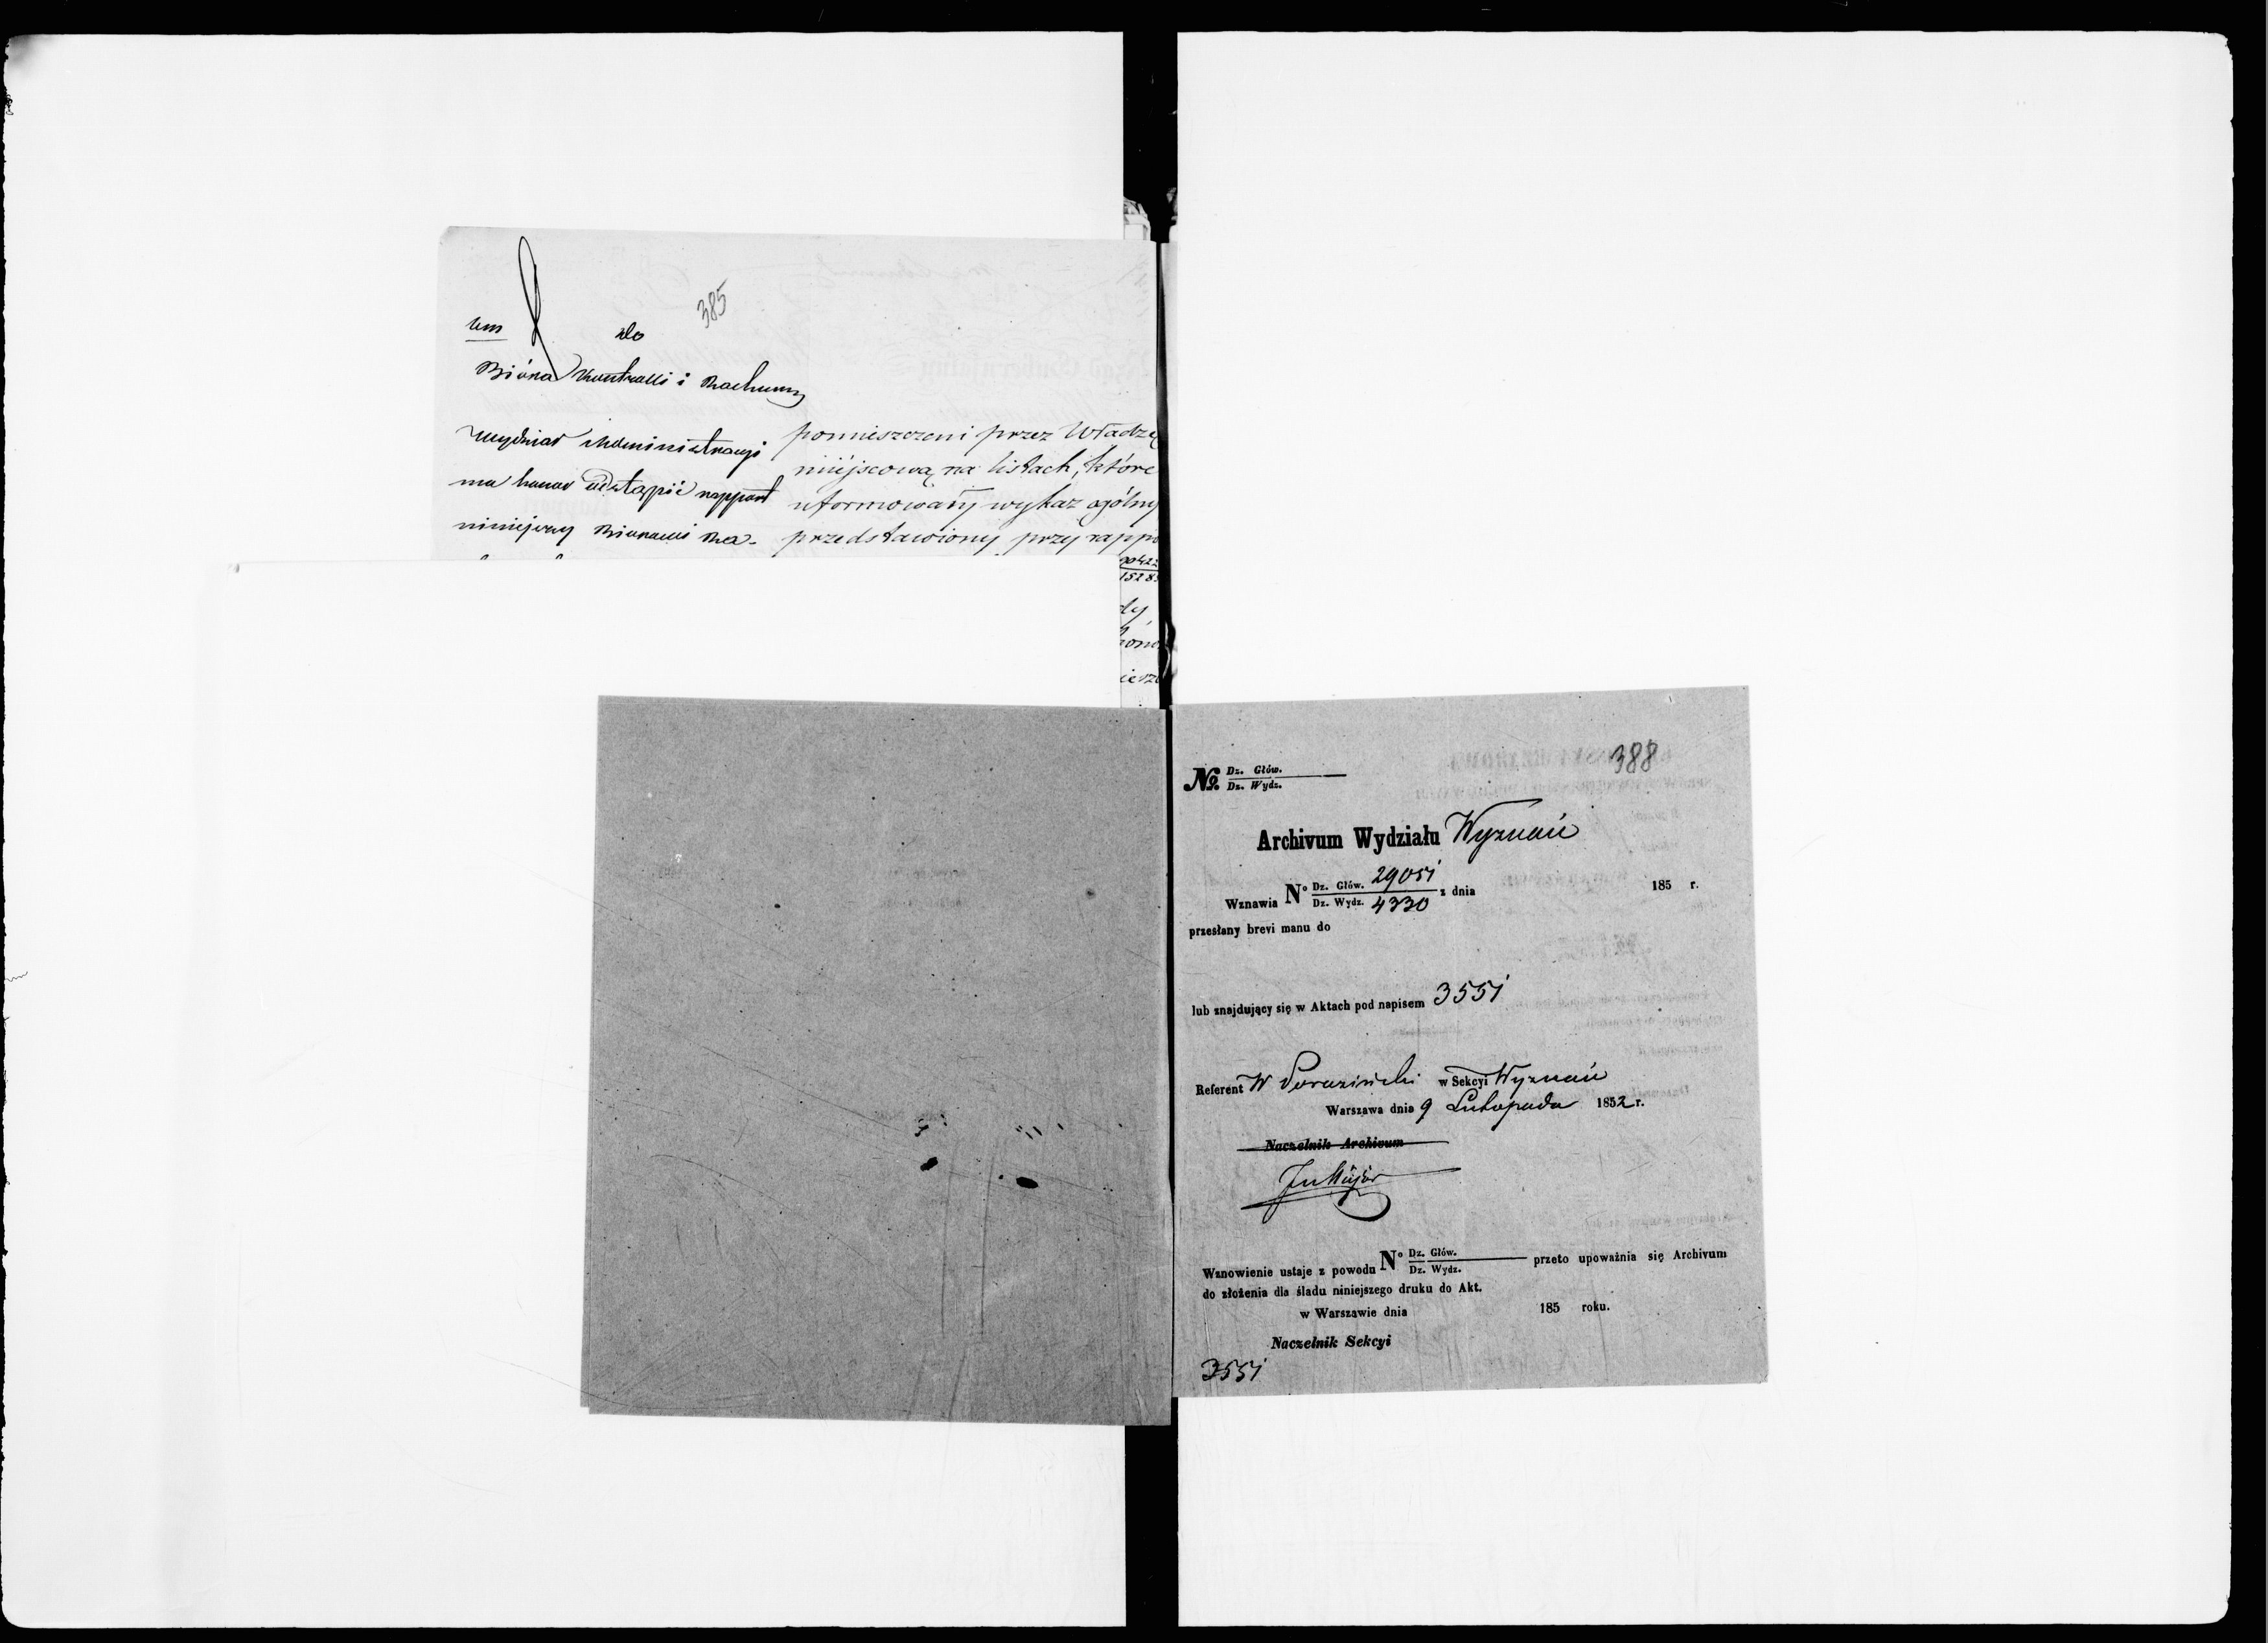 385
do
Bióra Kontrolli i Rachun
Wydział Administracyi
ma honor odstąpić rapport
niniejszy Biurowi Ra-
pomieszczeni przez Władzę
miéjscową na listach, które
uformowany wykaz ogólny
przedstawiony przy rappo
388
No. Dz. Głów.
Dz. Wydz.
Archivum Wydziału Wyznań
Wznawia No Dz. Głów. 29051 z dnia 185 r.
Dz. Wydz. 4330
przesłany brevi manu do
lub znajdujący się w Aktach pod napisem 3551
Referent W w Sekcyi Wyznań
Warszawa dnia 9 Listopada 1852 r.
Naczelnik Archivum
Wznowienie ustaje z powodu No Dz. Głów. przeto upoważnia się Archivum
Dz. Wydz.
do złożenia dla śladu niniejszego druku do Akt.
w Warszawie dnia 185 roku.
Naczelnik Sekcyi
3551